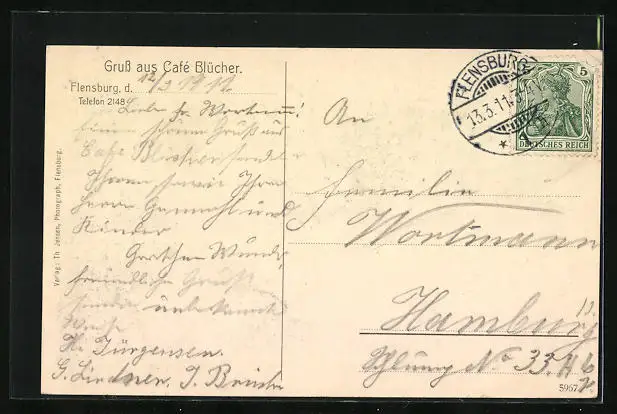 Gruß aus Café Blücher.
Flensburg, d. 12/3 1911.
Telefon 2148
Liebe Fr. Wortmann!
schöne Grüße aus
Café Blücher sendet
Ihnen sowie Ihren
Herrn Gemahl und
Kinder
Gretchen Wunder,
freundliche Grüße
sendet unbekannter
Weise
H. Jürgensen.
G. Lindner, J.
Verlag: Th. Jensen, Photograph, Flensburg.
FLENSBURG
13.3.11.
5
DEUTSCHES REICH
An
Familie
Wortmann
Hamburg
No 33 H 6
5967